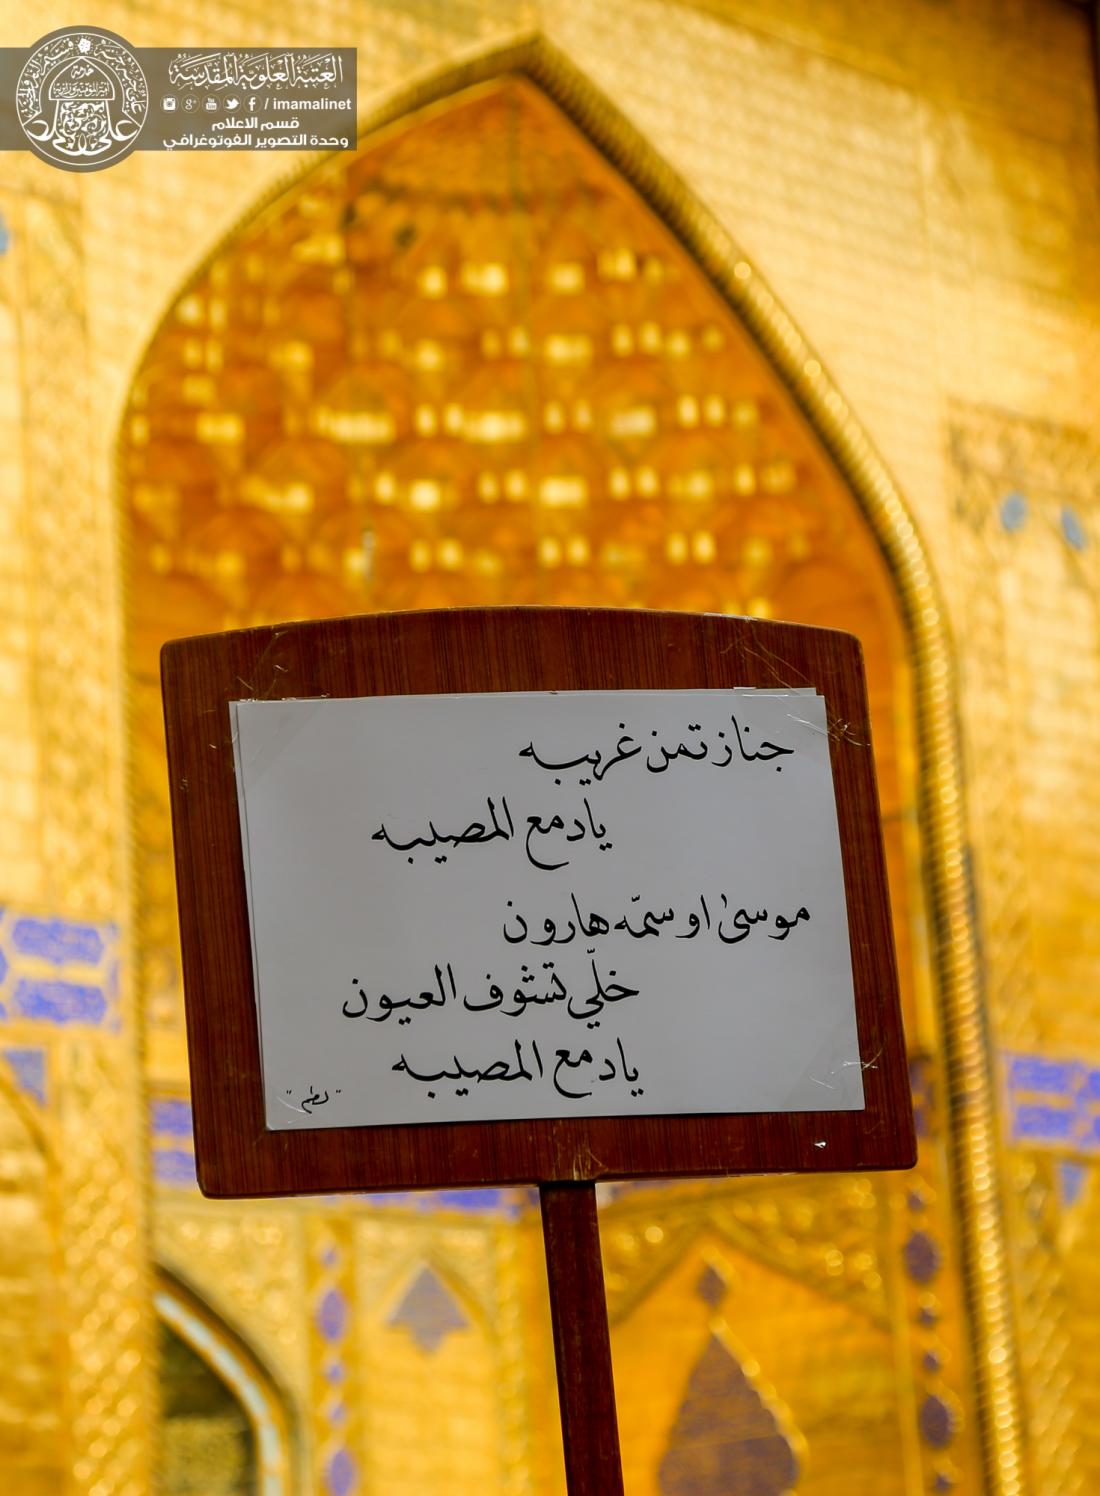 العتبة العلوية المقدسة
/ imamalinet
قسم الاعلام
وحدة التصوير الفوتوغرافي
جناز تمن غريبه
يادمع المصيبه
موسىٰ او سمّه هارون
خلّي تشوف العيون
يادمع المصيبه